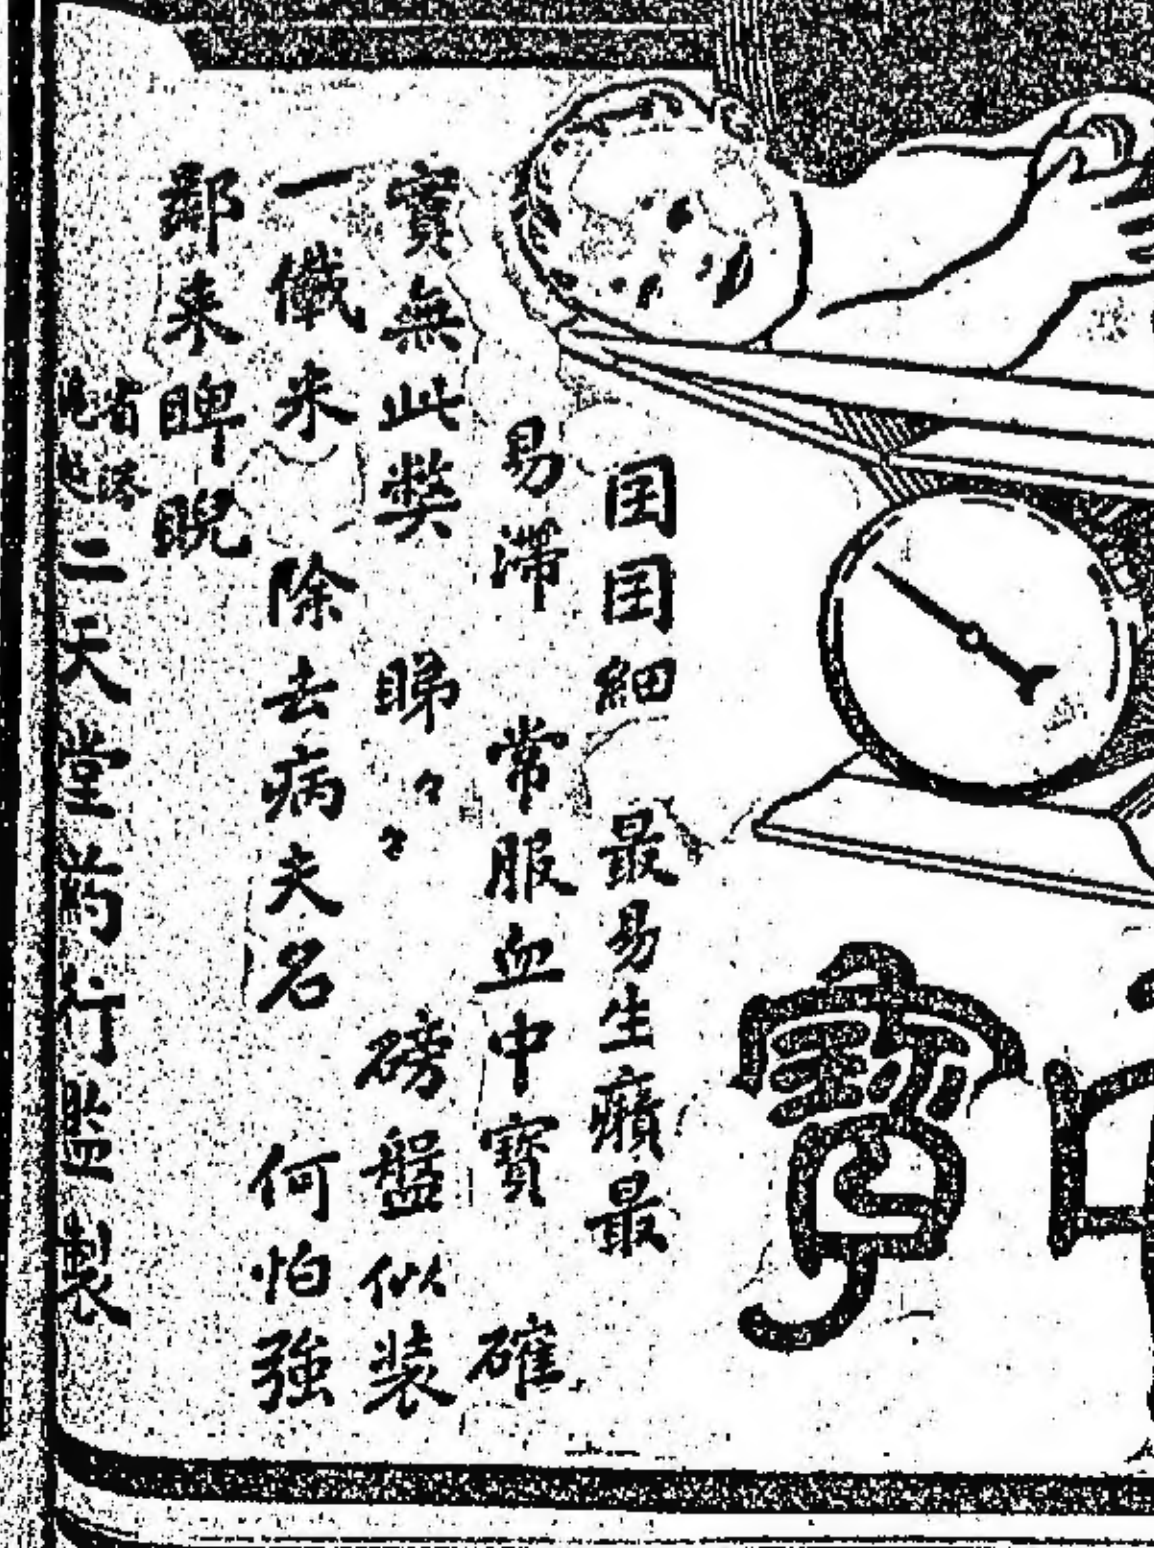 寶
囝囝細 最易生癪最
易滯 常服血中寶 確
實無此獘 睇々々 磅盤似裝
一儎来 除去病夫名 何怕強
鄰来睥睨
二天堂葯行监製